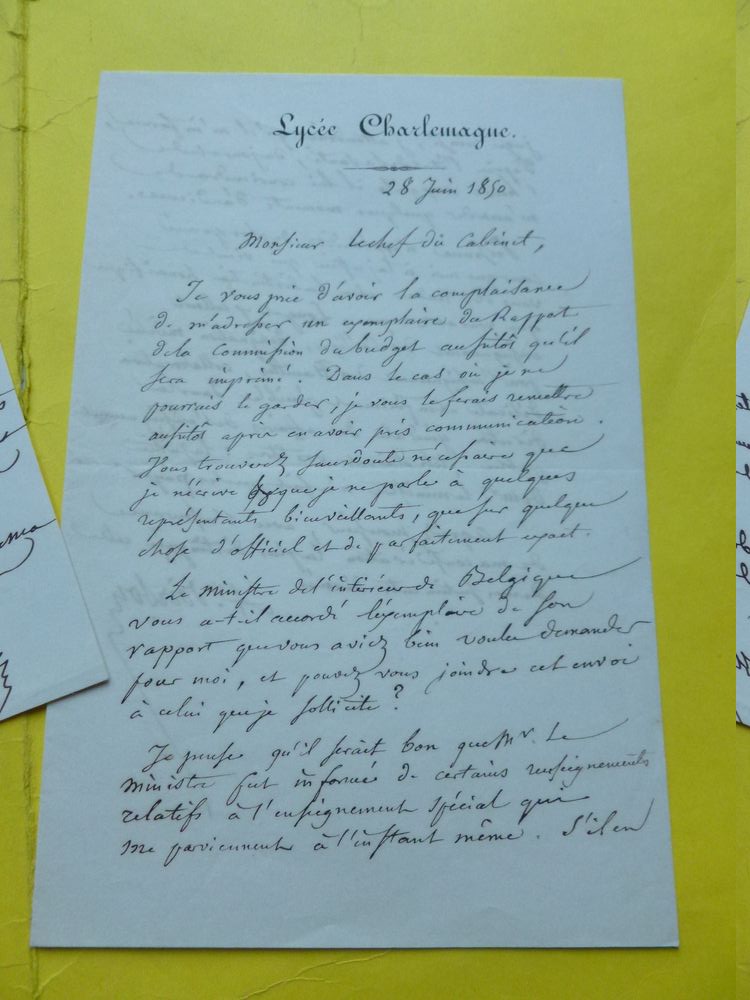 Lycée Charlemagne.
28 Juin 1850
Monsieur le chef du Cabinet,
Je vous prie d'avoir la complaisance
de m'adresser un exemplaire du Rapport
de la Commission du budget aussitôt qu'il
sera imprimé. Dans le cas où je ne
pourrais le garder, je vous le ferais remettre
aussitôt après en avoir pris communication.
Vous trouverez sans doute nécessaire que
je n'écrive que je ne parle à quelques
représentants bienveillants, que sur quelque
chose d'officiel et de parfaitement exact.
Le ministre de l'intérieur de Belgique
vous a-t-il accordé l'exemplaire de son
rapport que vous aviez bien voulu demander
pour moi, et pouvez vous joindre cet envoi
à celui que je sollicite ?
Je pense qu'il serait bon que Mr. le
ministre fut informé de certains renseignements
relatifs à l'enseignement spécial qui
me parviennent à l'instant même. S'il en